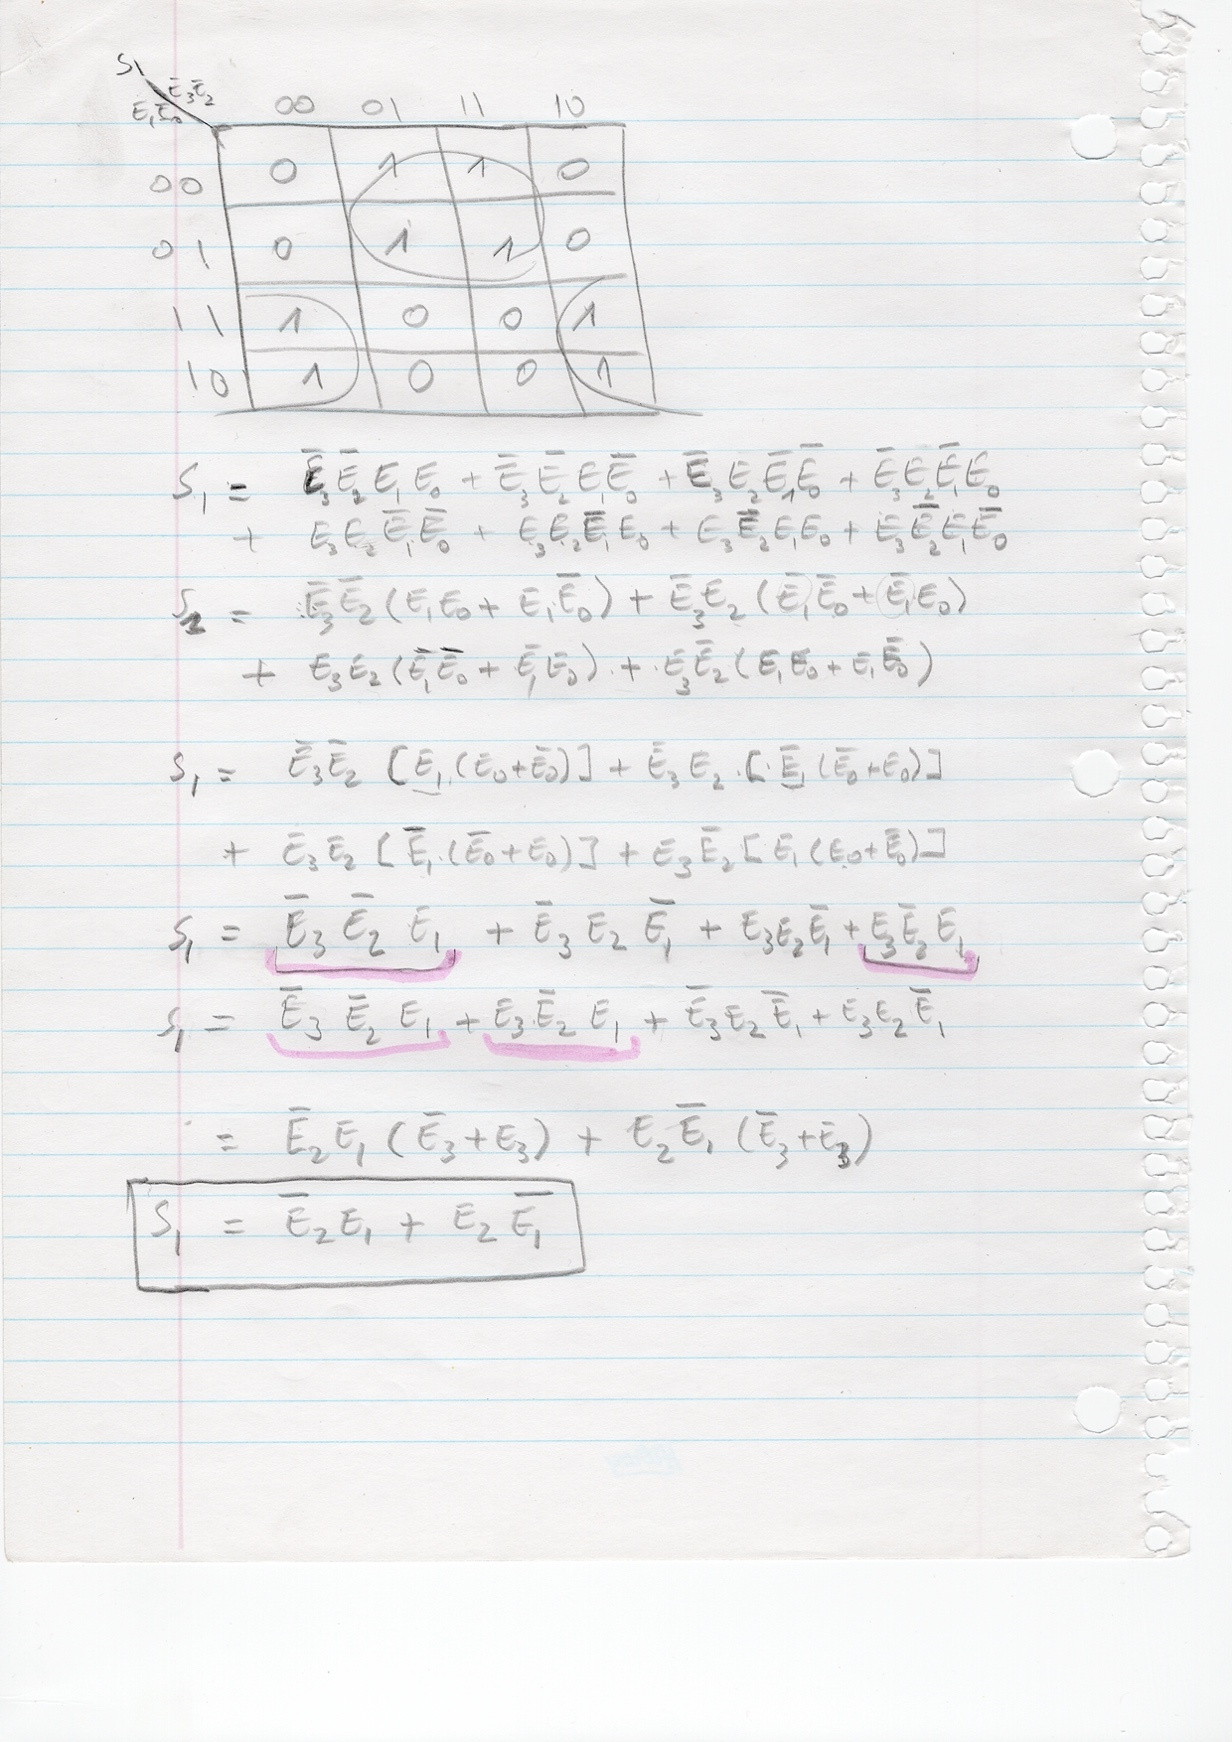 S1 E̅3E̅2
E1E0 00 01 11 10
00 0 1 1 0
01 0 1 1 0
11 1 0 0 1
10 1 0 0 1
S1 = E̅3E̅2E1E0 + E̅3E̅2E1E̅0 + E̅3E2E̅1E̅0 + E̅3E2E̅1E0
+ E3E2E̅1E̅0 + E3E2E̅1E0 + E3E̅2E1E0 + E3E̅2E1E̅0
= E̅3E̅2(E1E0 + E1E̅0) + E̅3E2(E̅1E̅0 + E̅1E0)
+ E3E2(E̅1E̅0 + E̅1E0) + E3E̅2(E1E0 + E1E̅0)
S1 = E̅3E̅2 [E1.(E0+E̅0)] + E̅3E2.[E̅1(E̅0+E0)]
+ E3E2[E̅1.(E̅0+E0)] + E3E̅2[E1(E0+E̅0)]
S1 = E̅3E̅2E1 + E̅3E2E̅1 + E3E2E̅1 + E3E̅2E1
S1 = E̅3E̅2E1 + E3E̅2E1 + E̅3E2E̅1 + E3E2E̅1
= E̅2E1(E̅3+E3) + E2E̅1(E̅3+E3)
S1 = E̅2E1 + E2E̅1